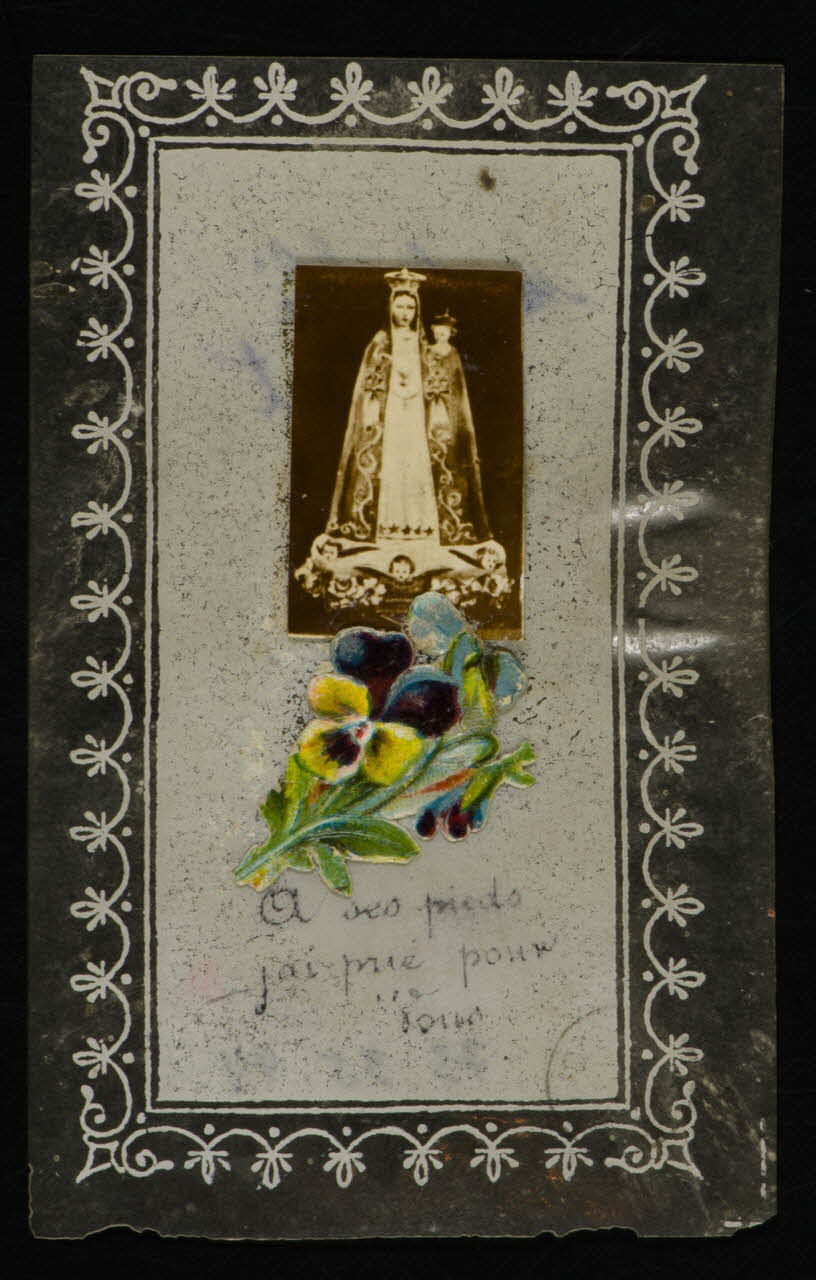 A ses pieds
j'ai prié pour
Tous